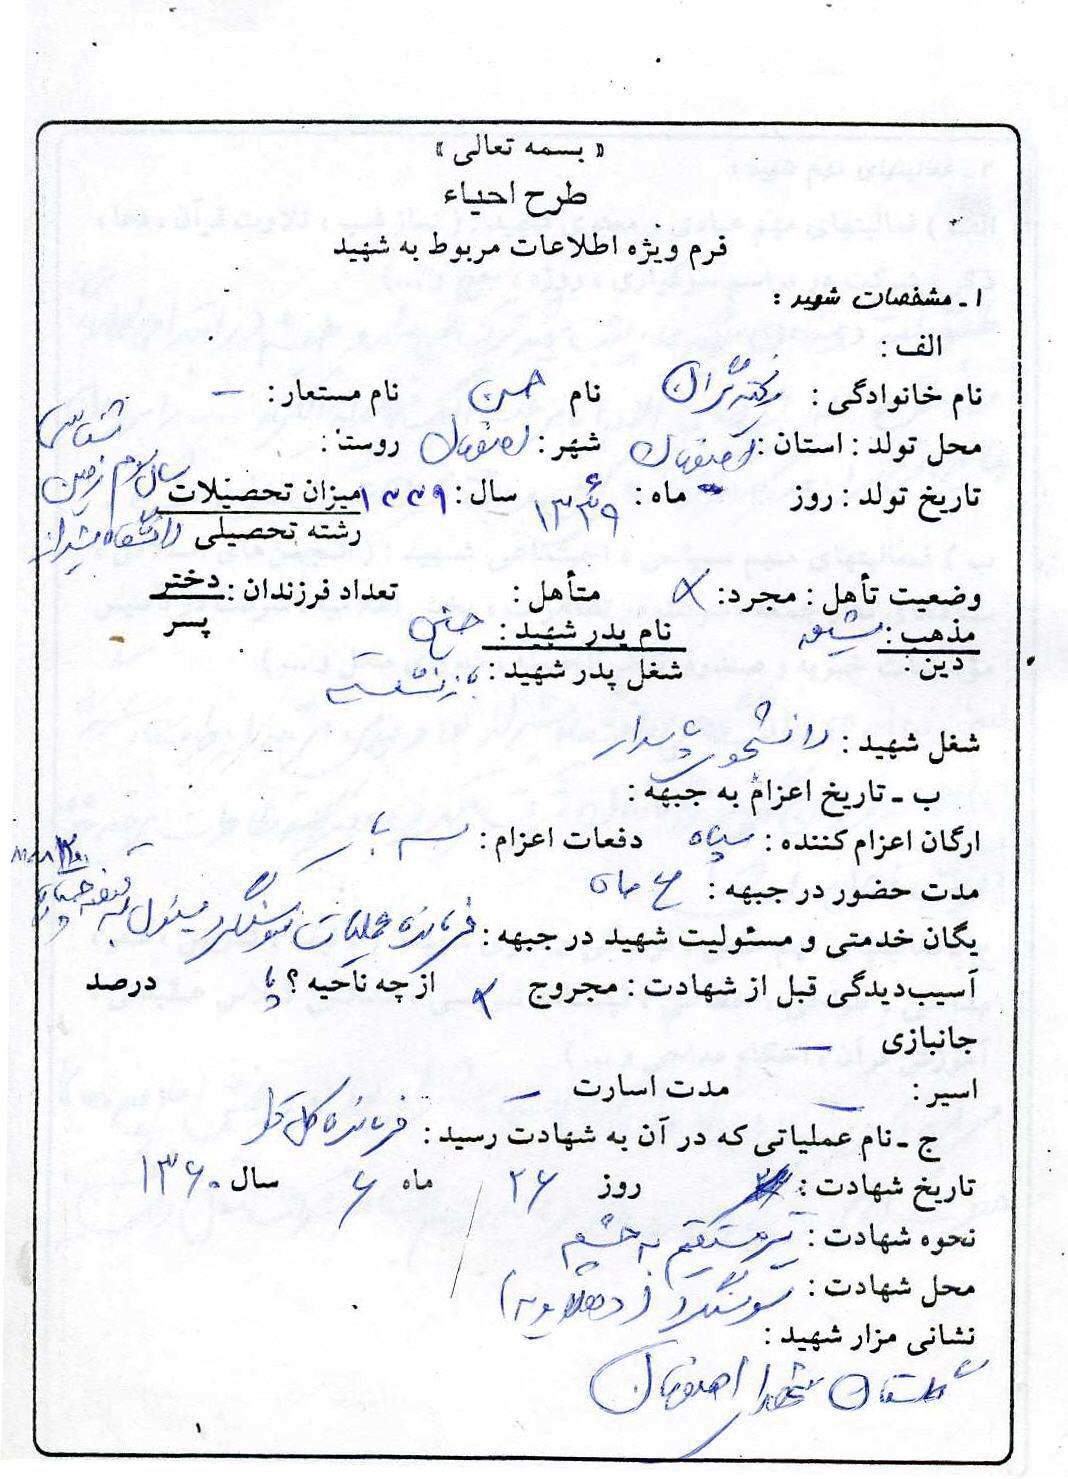 « بسمه تعالی »
طرح احیاء
فرم ویژه اطلاعات مربوط به شهید
۱ ـ مشخصات شهید :
الف :
نام خانوادگی : نام حسن نام مستعار : —
محل تولد : استان : اصفهان شهر : اصفهان روستا :
تاریخ تولد : روز ماه : ۶ ۱۳۳۹ سال : ۱۳۳۹ میزان تحصیلات سال سوم زمین شناسی
رشته تحصیلی دانشگاه شیراز
وضعیت تأهل : مجرد : × متأهل : تعداد فرزندان : دختر
پسر
مذهب : شیعه نام پدر شهید :
دین : شغل پدر شهید : بازنشسته
شغل شهید : دانشجوی پاسدار
ب ـ تاریخ اعزام به جبهه :
ارگان اعزام کننده : سپاه دفعات اعزام : سه بار
مدت حضور در جبهه : ۶ ماه
یگان خدمتی و مسئولیت شهید در جبهه : فرمانده عملیات سوسنگرد مسئول
آسیب‌دیدگی قبل از شهادت : مجروح × از چه ناحیه ؟ پا درصد
جانبازی —
اسیر : — مدت اسارت —
ج ـ نام عملیاتی که در آن به شهادت رسید : فرمانده کل قوا
تاریخ شهادت : روز ۲۶ ماه ۶ سال ۱۳۶۰
نحوه شهادت : تیر مستقیم به چشم
محل شهادت : سوسنگرد (دهلاویه)
نشانی مزار شهید :
گلستان شهدای اصفهان
۱